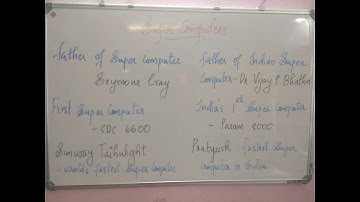 Super Computers
Father of Super computer
Seymour Cray
Father of Indian Super
Computer - Dr Vijay P Bhatkar
First Super Computer
- CDC 6600
India's 1st Super Computer
- Param 8000
Sunway Taihulight
- world's fastest Super Computer
Pratyush - fastest Super
Computer in India